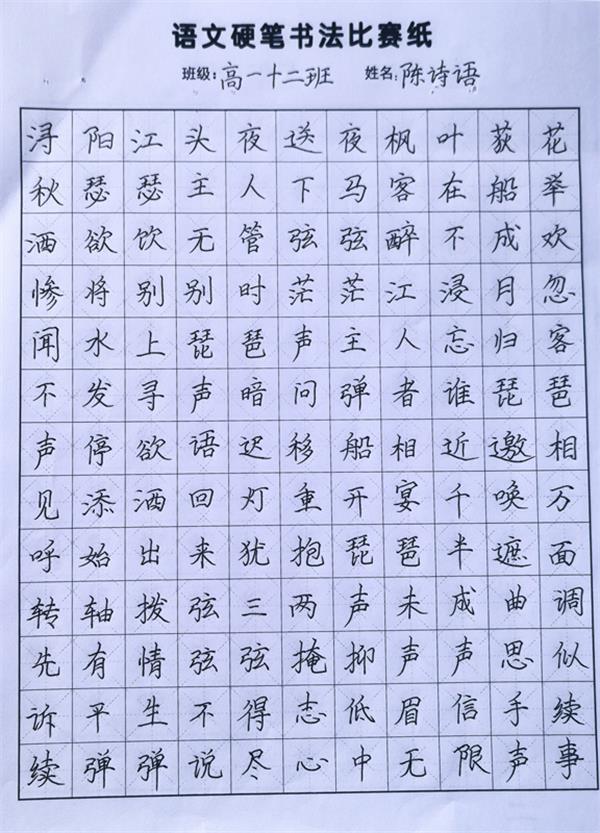 语文硬笔书法比赛纸
班级：高一十二班 姓名：陈诗语
浔阳江头夜送夜枫叶荻花
秋瑟瑟主人下马客在船举
酒欲饮无管弦弦醉不成欢
惨将别别时茫茫江浸月忽
闻水上琵琶声主人忘归客
不发寻声暗问弹者谁琵琶
声停欲语迟移船相近邀相
见添酒回灯重开宴千唤万
呼始出来犹抱琵琶半遮面
转轴拨弦三两声未成曲调
先有情弦弦掩抑声声思似
诉平生不得志低眉信手续
续弹弹说尽心中无限声事